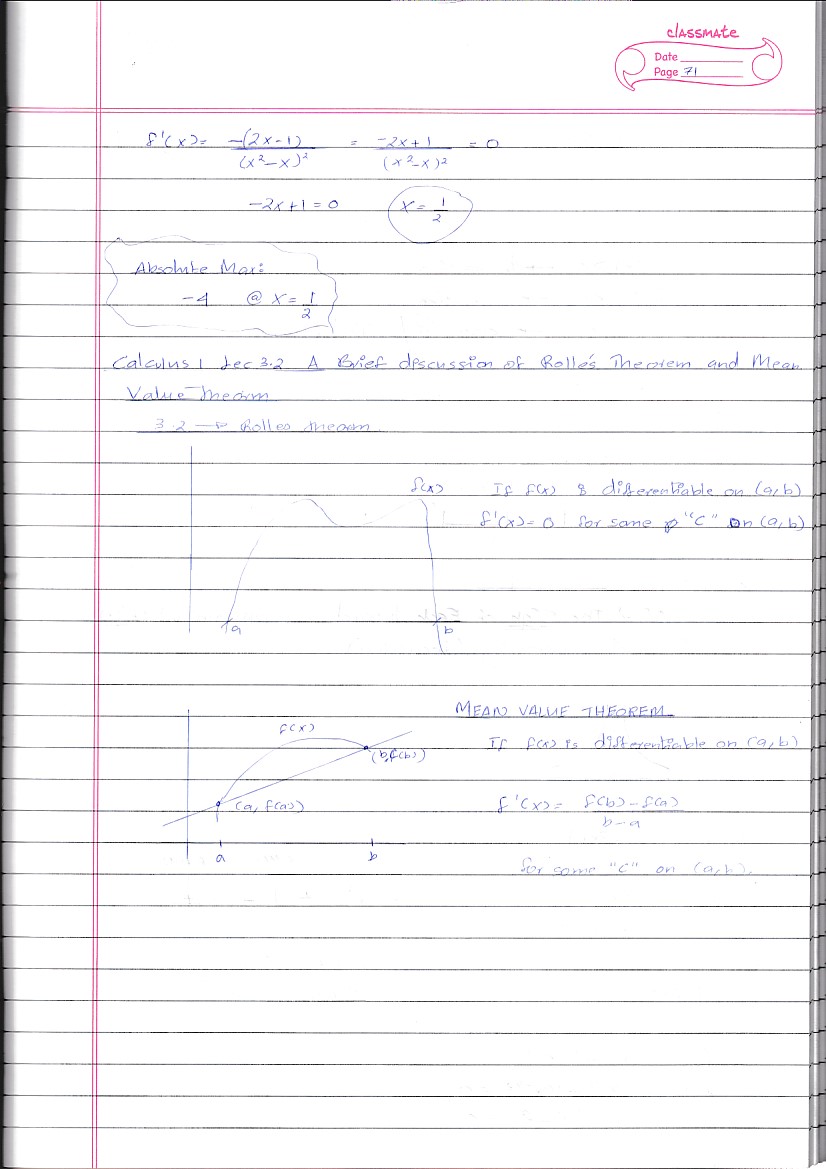 classmate
Date
Page 71
f'(x) = -(2x-1)/(x²-x)² = -2x+1/(x²-x)² = 0
-2x+1=0 x = 1/2
Absolute Max:
-4 @ x = 1/2
Calculus 1 Lec 3.2 A Brief discussion of Rolle's Theorem and Mean
Value Theorm
3.2 → Rolles theorm
f(x) If f(x) is differentiable on (a,b)
f'(x)=0 for some "C" on (a,b)
a b
MEAN VALUE THEOREM
f(x)
If f(x) is differentiable on (a,b)
(b,f(b))
(a, f(a)) f'(x) = f(b)-f(a)/b-a
a b
for some "C" on (a,b).